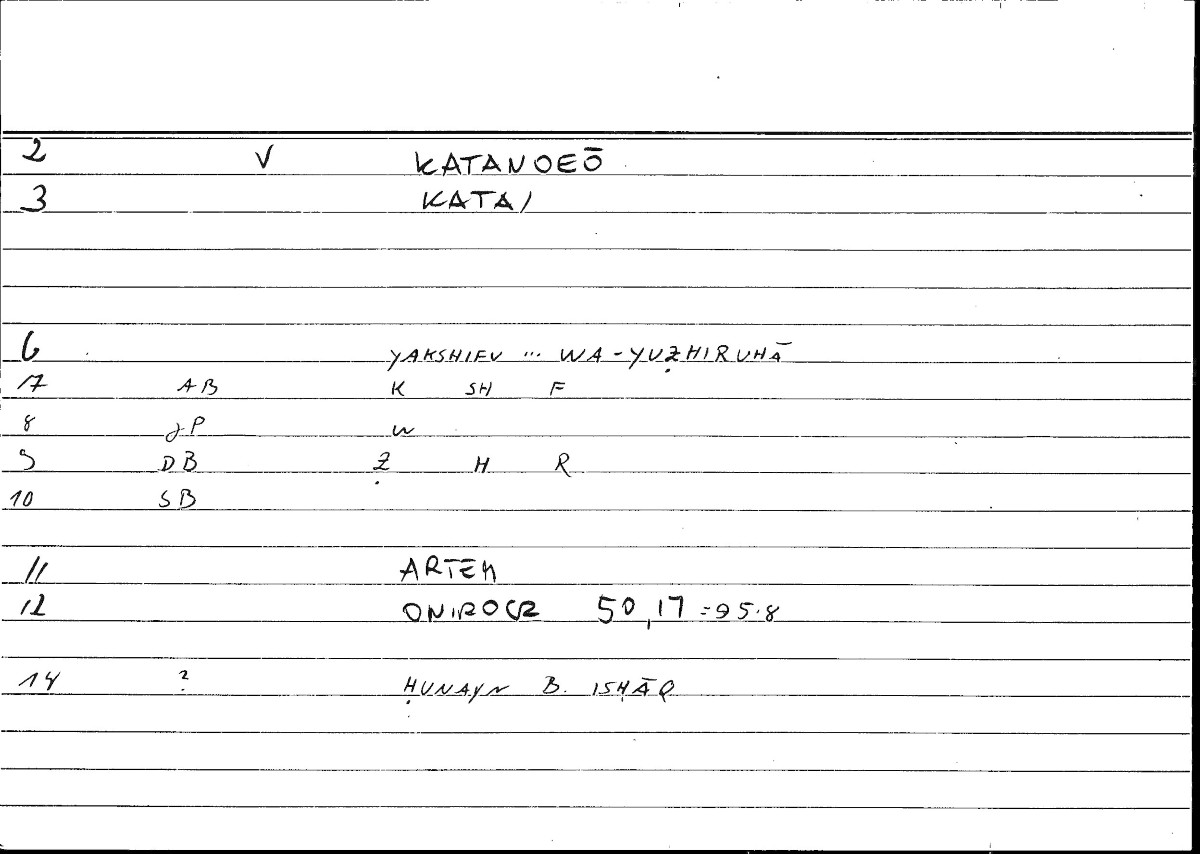 2 V KATANOEŌ
3 KATA/
6 YAKSHIFU ... WA-YUẒHIRUHĀ
17 AB K SH F
8 JP W
9 DB Ẓ H R
10 SB
11 ARTEM
12 ONIROCR 50,17 = 95.8
14 ? ḤUNAYN B. ISḤĀQ